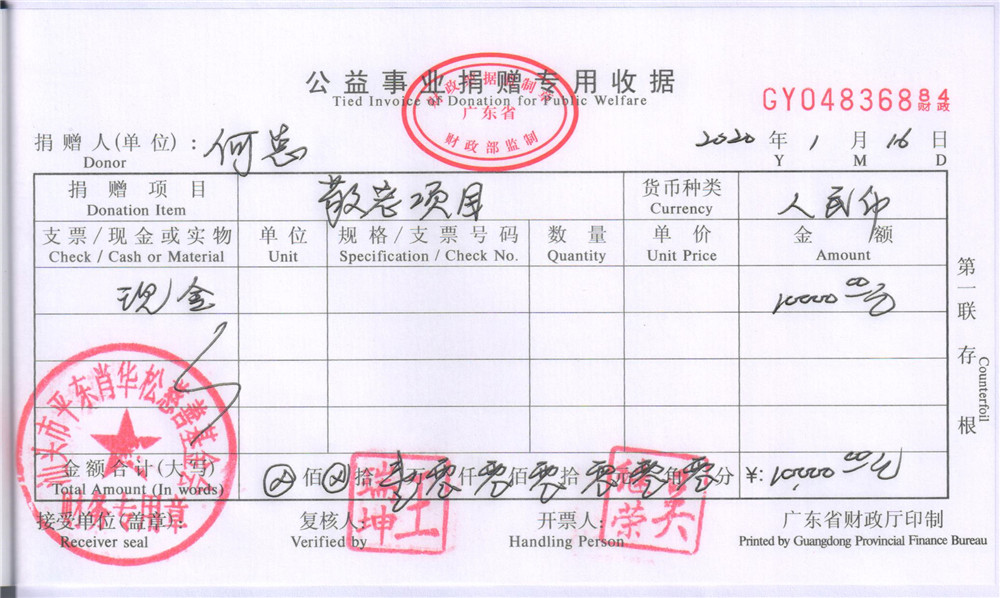 公益事业捐赠专用收据
Tied Invoice of Donation for Public Welfare
财政票据监制章
广东省
财政部监制
GY04836884
财政
捐赠人(单位)：何忠
Donor
2020 年 1 月 16 日
Y M D
捐赠项目 慈善项目 货币种类 人民币
Donation Item Currency
支票/现金或实物 单位 规格/支票号码 数量 单价 金额
Check / Cash or Material Unit Specification / Check No. Quantity Unit Price Amount
现金 10000.00元
第一联 存根
Counterfoil
汕头市平东肖华松慈善基金会
财务专用章
金额合计(大写) 佰 拾 壹万零仟零佰零拾零元零角零分 ¥: 10000.00元
Total Amount (In words)
接受单位(盖章): 复核人: 开票人: 广东省财政厅印制
Receiver seal Verified by Handling Person Printed by Guangdong Provincial Finance Bureau
王瑞坤
吴继荣